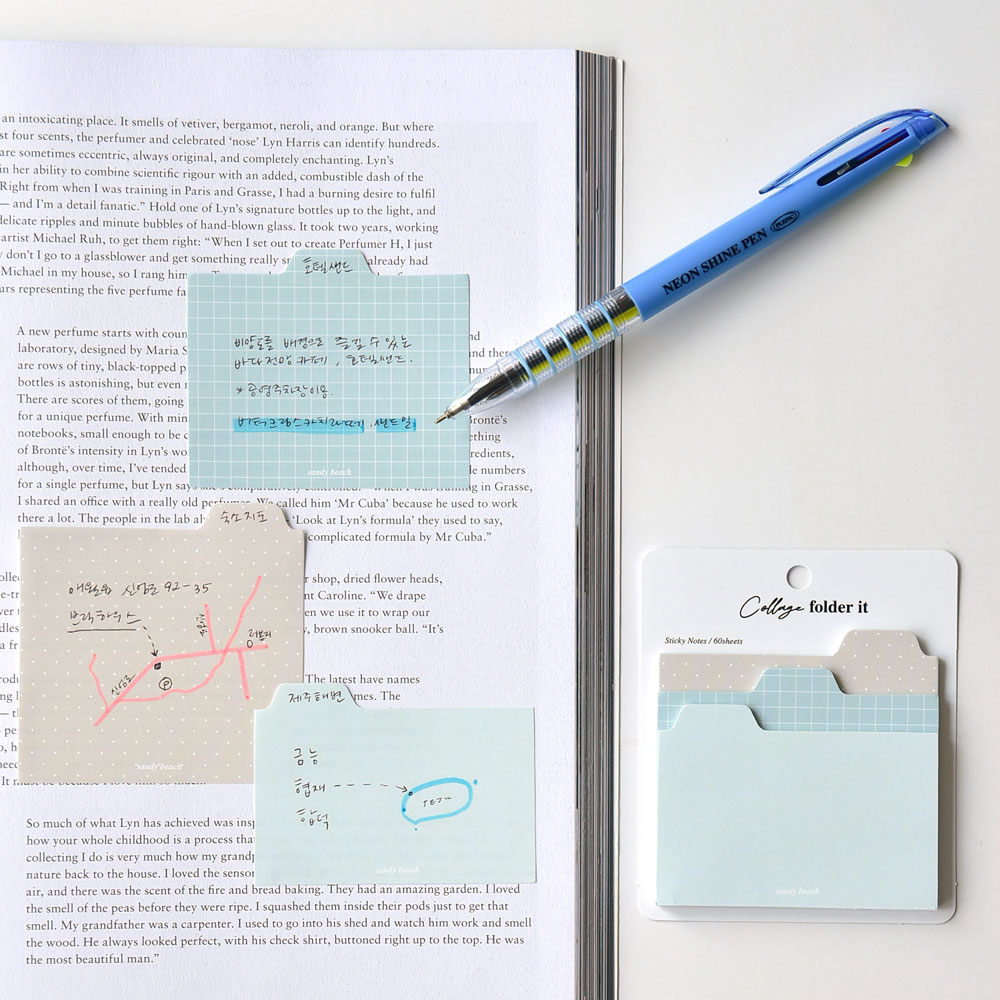 an intoxicating place. It smells of vetiver, bergamot, neroli, and orange. But where
st four scents, the perfumer and celebrated ‘nose’ Lyn Harris can identify hundreds.
are sometimes eccentric, always original, and completely enchanting. Lyn’s
in her ability to combine scientific rigour with an added, combustible dash of the
Right from when I was training in Paris and Grasse, I had a burning desire to fulfil
— and I’m a detail fanatic.” Hold one of Lyn’s signature bottles up to the light, and
delicate ripples and minute bubbles of hand-blown glass. It took two years, working
artist Michael Ruh, to get them right: “When I set out to create Perfumer H, I just
don’t I go to a glassblower and get something really already had
Michael in my house, so I rang him
urs representing the five perfume fa
호텔샌드
비양도를 배경으로 즐길 수 있는
바다전망 카페, 호텔샌드.
* 공영주차장이용
sandy beach
A new perfume starts with coun
laboratory, designed by Maria S
are rows of tiny, black-topped p
bottles is astonishing, but even
There are scores of them, going
for a unique perfume. With min Brontë’s
notebooks, small enough to be c
of Brontë’s intensity in Lyn’s wo redients,
although, over time, I’ve tended numbers
for a single perfume, but Lyn says training in Grasse,
I shared an office with a really old perfumer. We called him ‘Mr Cuba’ because he used to work
there a lot. The people in the lab ‘Look at Lyn’s formula’ they used to say,
complicated formula by Mr Cuba.”
숙소지도
애월읍 신엄로 92-35
브릭하우스
신엄로
P
sandy beach
r shop, dried flower heads,
nt Caroline. “We drape
en we use it to wrap our
, brown snooker ball. “It’s
The latest have names
mes. The
제주해변
금능
협재
함덕
JEJU
sandy beach
So much of what Lyn has achieved was insp
how your whole childhood is a process that
collecting I do is very much how my grandp
nature back to the house. I loved the sensor
air, and there was the scent of the fire and bread baking. They had an amazing garden. I loved
the smell of the peas before they were ripe. I squashed them inside their pods just to get that
smell. My grandfather was a carpenter. I used to go into his shed and watch him work and smell
the wood. He always looked perfect, with his check shirt, buttoned right up to the top. He was
the most beautiful man.”
NEON SHINE PEN PLEPIC
Collage folder it
Sticky Notes / 60sheets
sandy beach